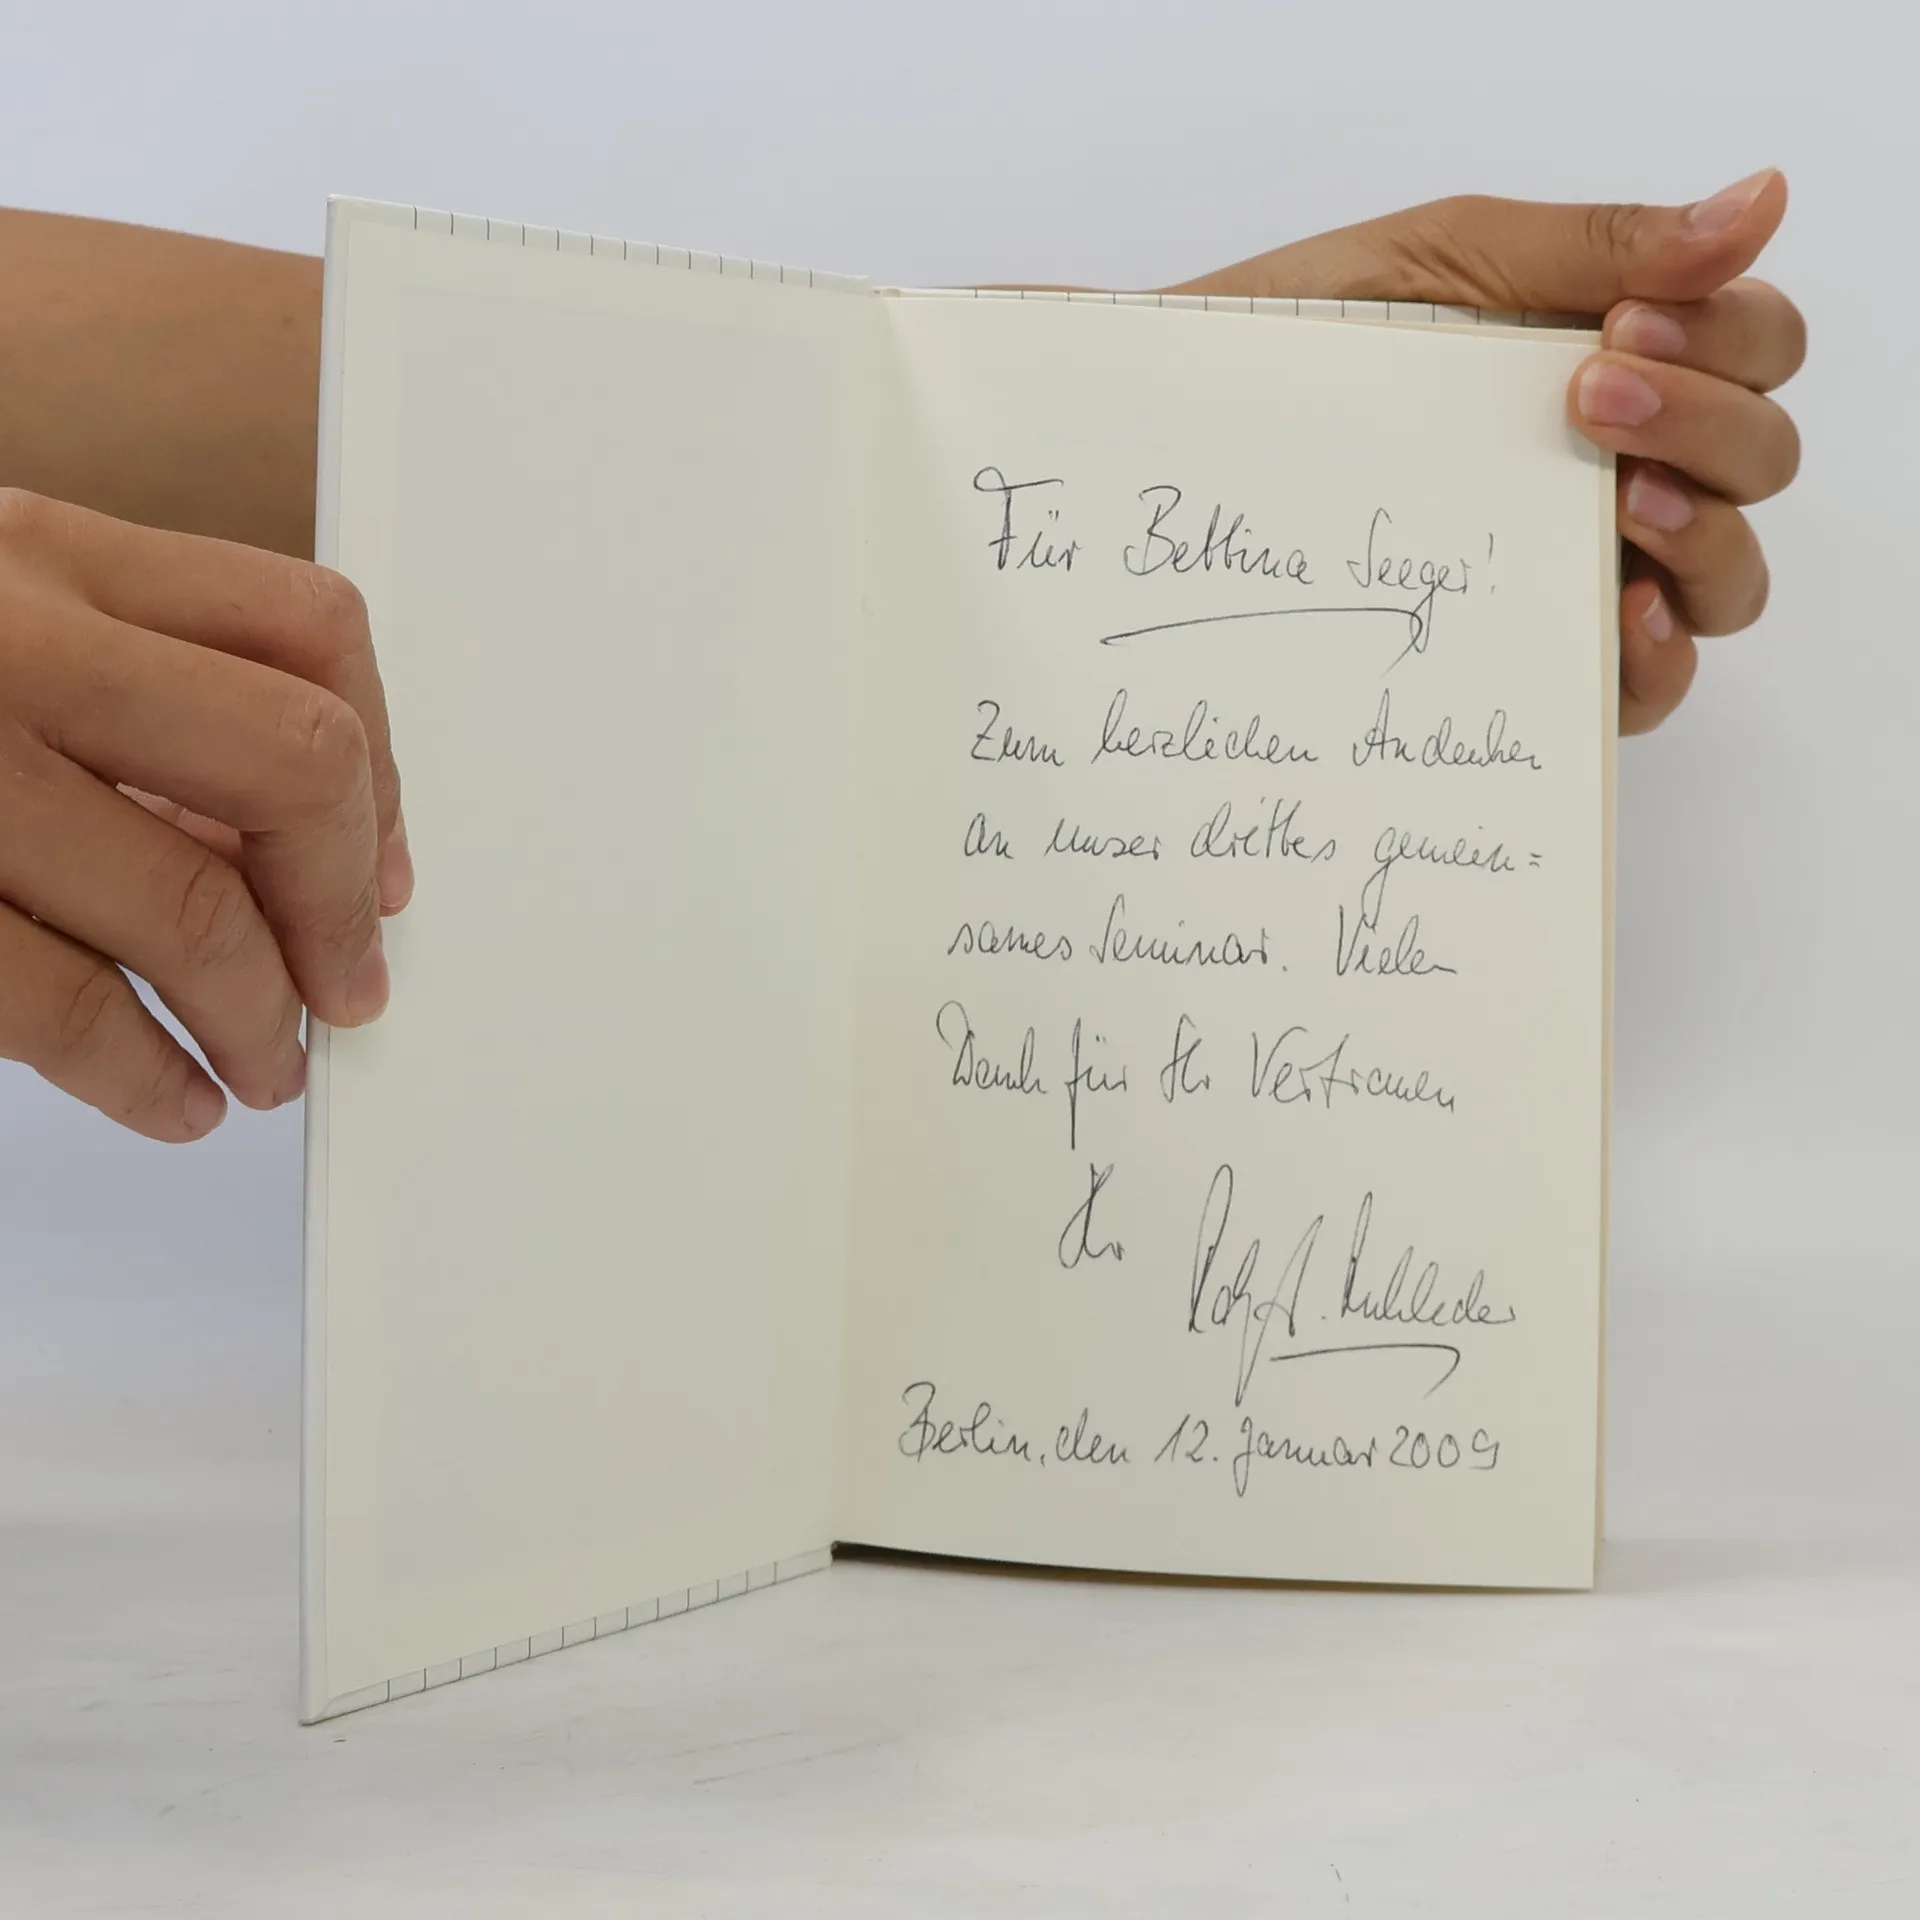 Für Bettina Seeger!
Zum herzlichen Andenken
an unser drittes gemein=
sames Seminar. Vielen
Dank für Ihr Vertrauen
Ihr Rolf H. Ruhleder
Berlin, den 12. Januar 2009